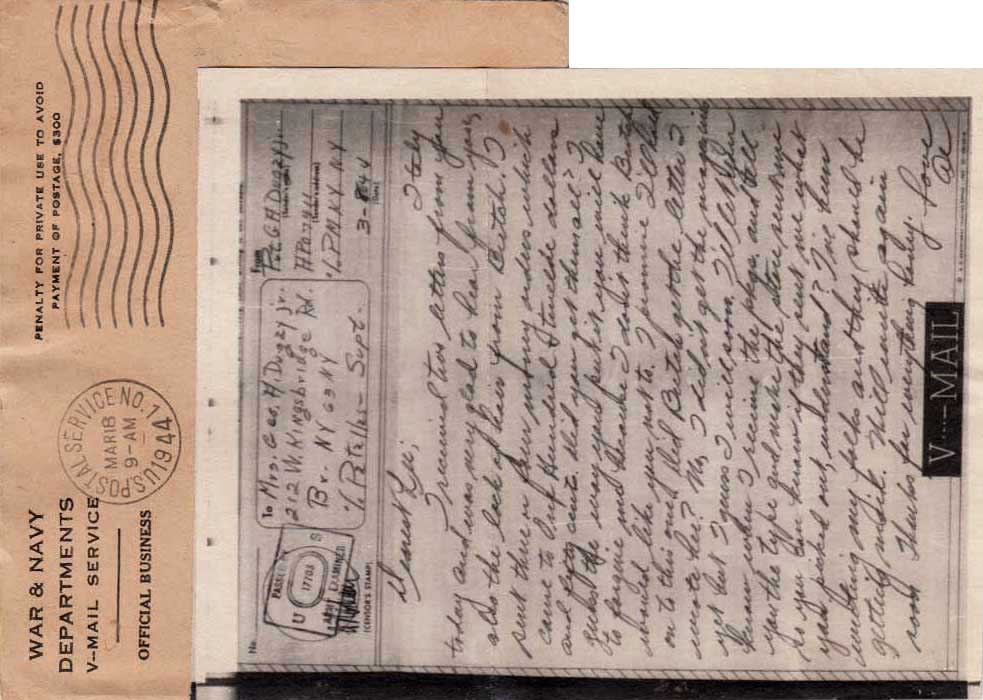 WAR & NAVY
DEPARTMENTS
V--MAIL SERVICE
OFFICIAL BUSINESS
U.S. POSTAL SERVICE NO. 1
MAR 18
9-AM
1944
PENALTY FOR PRIVATE USE TO AVOID
PAYMENT OF POSTAGE, $300
No.
PASSED BY
U S
17703
ARMY EXAMINER
(CENSOR'S STAMP)
To Mrs. Geo. H. Dugzy jr.
212 W. Kingsbridge Rd.
Bx. NY 63 NY
% Patello - Supt.
From
Pvt G H Dugzy jr.
APO 
% P.M. NY NY
3-8-44
Italy
Dearest Lu;
I received two letters from you
today and was very glad to hear from you,
also the lock of hair from Butch. I
sent three a few money orders which
came to One Hundred & twelve dollars
and cents. Did you get them all? I
guess the way you put it you will have
to forgive me thanks I don't think Butch
should like you not to. I promise I'll hold
on to this one. Did Butch get the letter I
wrote her? No, I didn't get the magazine
yet but I guess I will soon. I'll let you
know when I receive the pkge. and tell
you the type and make the store sent me
so you can know if they sent me what
you picked out, understand? I've been
writing my folks and they should be
getting mail. Will write again
soon. Thanks for everything Baby. Love
V····—MAIL